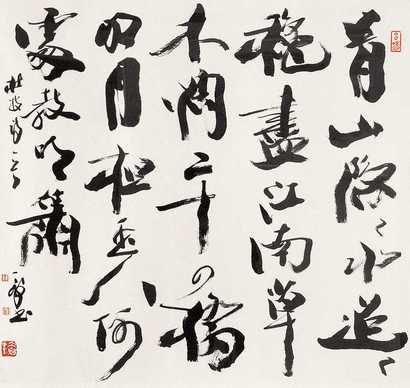 青山隱〻水迢〻
秋盡江南草
木凋二十四橋
明月夜玉人何
處教吹簫
杜牧詩一首